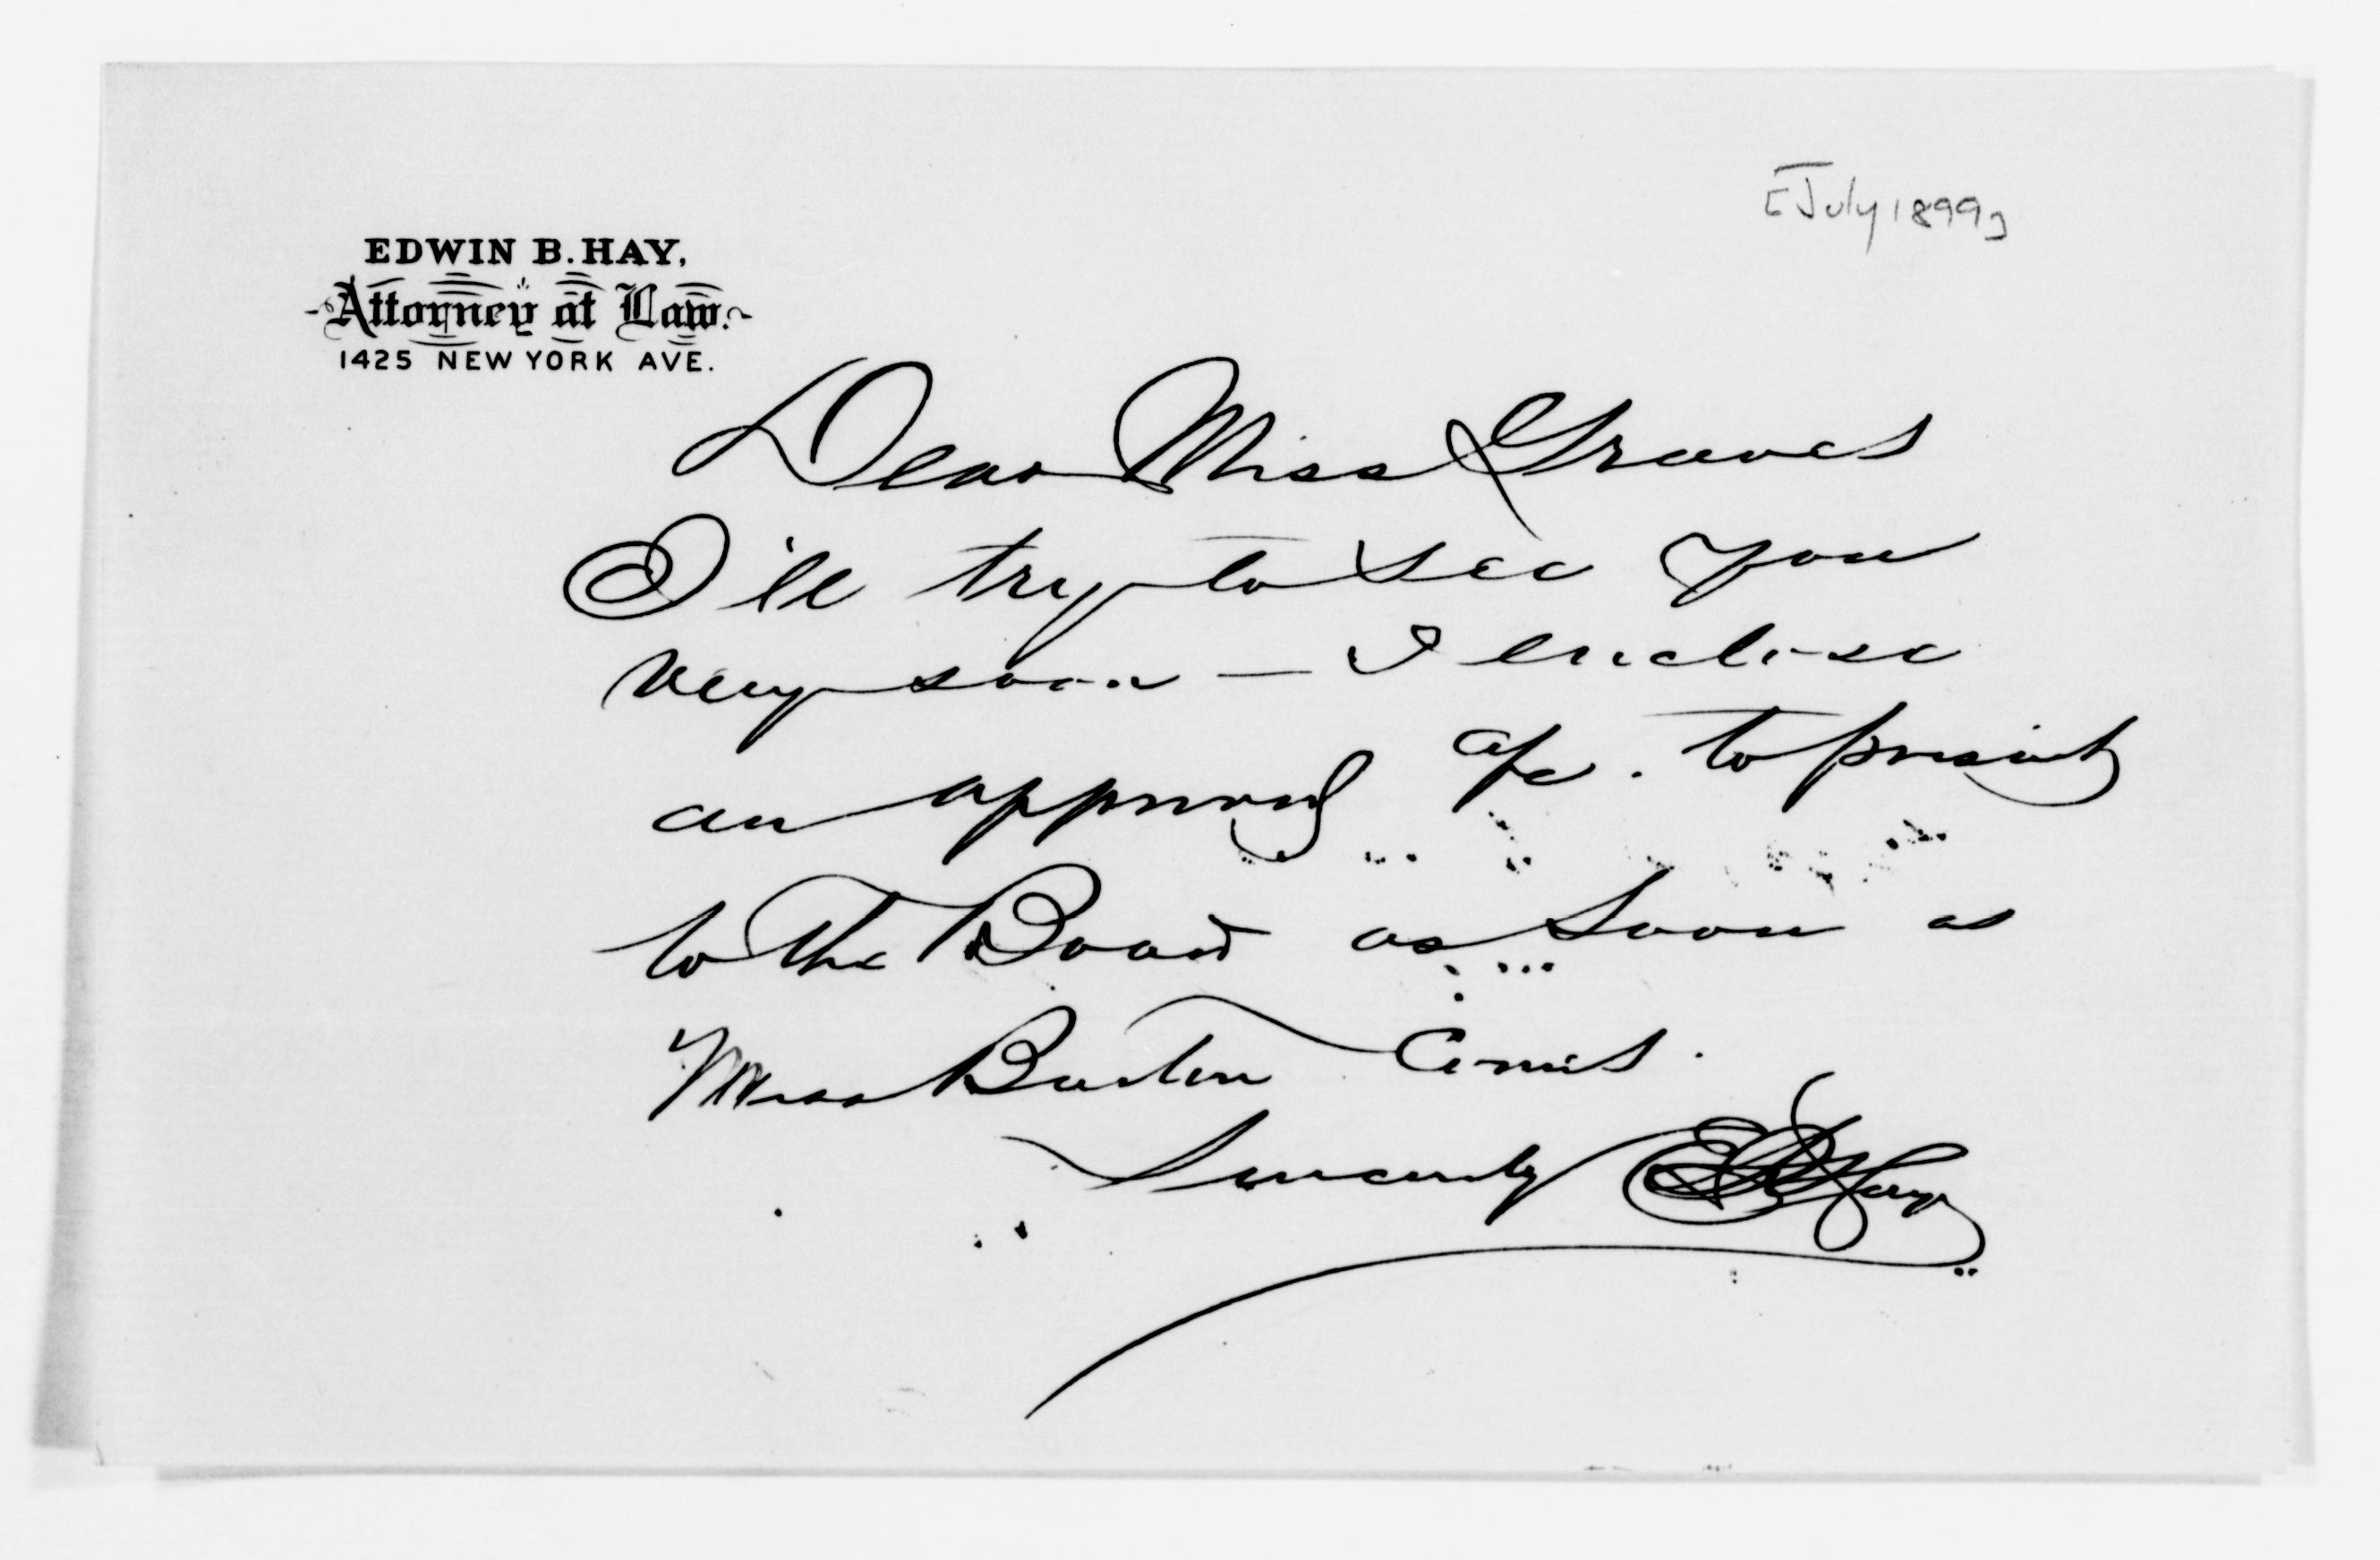 [July 1899]
EDWIN B. HAY,
Attorney at Law.
1425 NEW YORK AVE.
Dear Miss Graves
I'll try to see you
very soon — I enclose
an approved a/c. to present
to the Board as soon as
Miss Barton comes.
Sincerely E B Hay